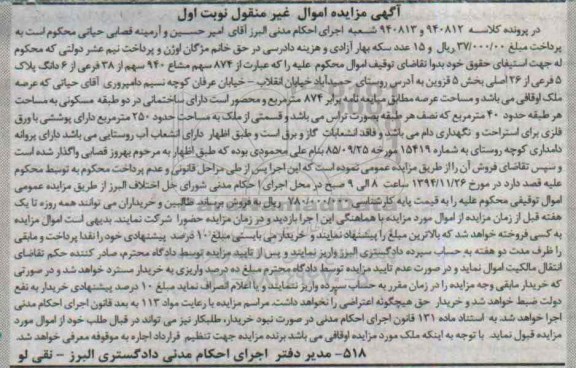 آگهی مزایده اموال غیر منقول نوبت اول
در پرونده کلاسه ۹۴۰۸۱۲ و ۹۴۰۸۱۳ شعبه اجرای احکام مدنی البرز آقای امیر حسین و آرمینه فضایی حیاتی محکوم است به
پرداخت مبلغ ۳۷/۰۰۰/۰۰ ریال و ۱۵ عدد سکه بهار آزادی و هزینه دادرسی در حق خانم مژگان اوژن و پرداخت نیم عشر دولتی که محکوم
له جهت استیفای حقوق خود بدوا تقاضای توقیف اموال محکوم علیه را که عبارت از ۸۷۴ سهم مشاع ۹۴۰ سهم از ۳۸ فرعی از ۶ دانگ پلاک
۵ فرعی از ۲۶ اصلی بخش ۵ قزوین به آدرس روستای حمیدآباد خیابان انقلاب - خیابان عرفان کوچه نسیم دامپروری آقای حیاتی که عرصه
ملک اوقافی می باشد و مساحت عرصه مطابق مبایعه نامه برابر ۸۷۴ مترمربع و محصور است دارای ساختمانی در دو طبقه مسکونی به مساحت
هر طبقه حدود ۴۰ مترمربع که نصف هر طبقه بصورت تراس می باشد و قسمتی از ملک به مساحت حدود ۲۵۰ مترمربع دارای پوششی با ورق
فلزی برای استراحت و نگهداری دام می باشد و فاقد انشعابات گاز و برق است و طبق اظهار دارای انشعاب آب روستایی می باشد دارای پروانه
دامداری کوچک روستای به شماره ۱۵۴۱۹ مورخه ۸۵/۰۹/۲۵ بنام علی محمودی بوده که طبق اظهار به مرحوم بهروز قصابی واگذار شده است
و سپس تقاضای فروش آن را از طریق مزایده عمومی نموده است که این اجرا پس از طی مراحل قانونی و عدم پرداخت محکوم به توسط محکوم
علیه قصد دارد در مورخ ۱۳۹۴/۱۱/۲۶ ساعت ۸ الی ۹ صبح در محل اجرای احکام مدنی شورای حل اختلاف البرز از طریق مزایده عمومی
اموال توقیفی محکوم علیه را به قیمت پایه کارشناسی ریال به فروش برساند طالبین و خریداران می توانند همه روزه تا یک
هفته قبل از زمان مزایده از اموال مورد مزایده با هماهنگی این اجرا بازدید و در زمان مزایده حضورا شرکت نمایند. بدیهی است اموال مزایده
به کسی فروخته خواهد شد که بالاترین مبلغ را پیشنهاد نمایند و خریدار می بایستی مبلغ ۱۰ درصد پیشنهادی خود را نقدا پرداخت و مابقی
را ظرف مدت دو هفته به حساب سپرده دادگستری البرز واریز نمایند و پس از تایید مزایده توسط دادگاه محترم، صادر کننده حکم تقاضای
انتقال مالکیت اموال نماید و در صورت عدم تایید مزایده توسط دادگاه محترم مبلغ ده درصد واریزی به خریدار مسترد خواهد شد و در صورتی
که خریدار مابقی وجه مزایده را در زمان مقرر به حساب سپرده واریز ننماید و یا اعلام انصراف نماید مبلغ ۱۰ درصد پیشنهادی خریدار به نفع
دولت ضبط خواهد شد و خریدار حق هیچگونه اعتراضی را نخواهد داشت. مراسم مزایده با رعایت مواد ۱۱۳ به بعد قانون اجرای احکام مدنی
اجرا خواهد شد. به استناد ماده ۱۳۱ قانون اجرای احکام مدنی در صورت نبود خریدار، طلبکار نیز می تواند در قبال طلب خود از اموال مورد
مزایده قبول نماید. با توجه به اینکه ملک مورد مزایده اوقافی می باشد برنده مزایده جهت تنظیم قرارداد اجاره به موقوفه معرفی خواهد شد.
۵۱۸- مدیر دفتر اجرای احکام مدنی دادگستری البرز - نقی لو